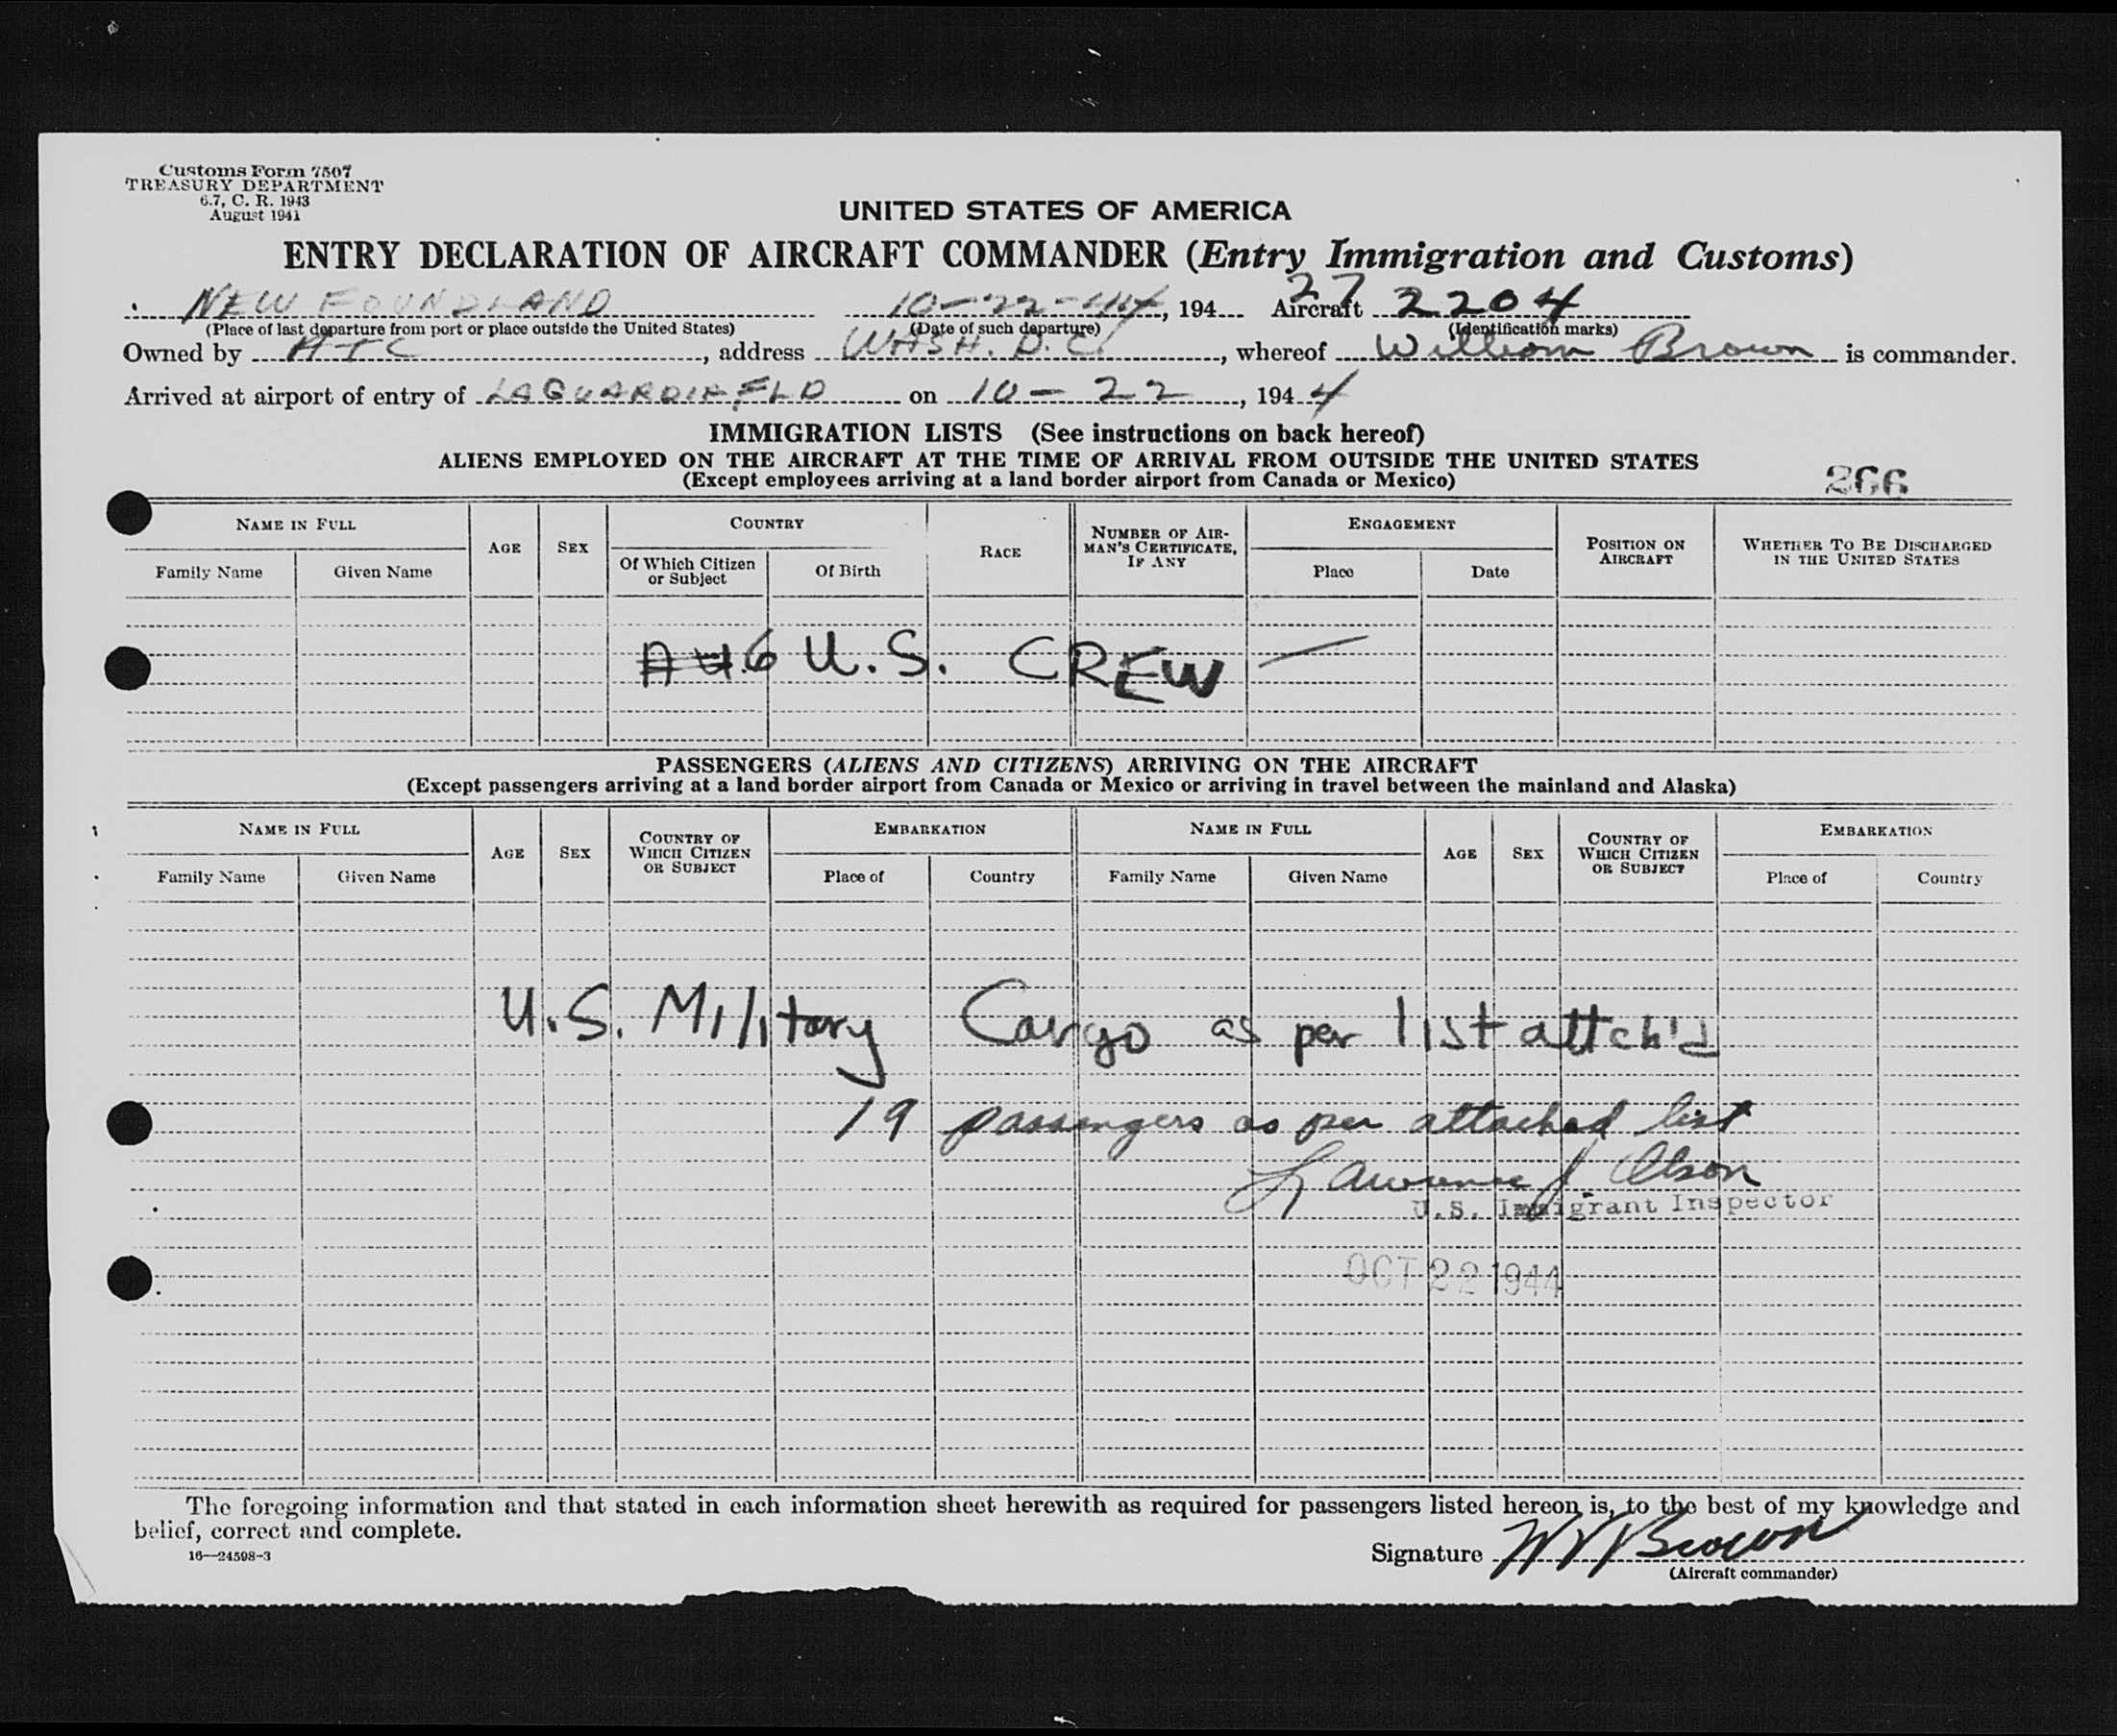 Customs Form 7507
TREASURY DEPARTMENT
6.7, C. R. 1943
August 1941
UNITED STATES OF AMERICA
ENTRY DECLARATION OF AIRCRAFT COMMANDER (Entry Immigration and Customs)
NEW FOUNDLAND 10-22-44, 194 Aircraft 27 2204
(Place of last departure from port or place outside the United States) (Date of such departure) (Identification marks)
Owned by ATC, address WASH. D.C., whereof William Brown is commander.
Arrived at airport of entry of LAGUARDIA FLD on 10-22, 1944
IMMIGRATION LISTS (See instructions on back hereof)
ALIENS EMPLOYED ON THE AIRCRAFT AT THE TIME OF ARRIVAL FROM OUTSIDE THE UNITED STATES
(Except employees arriving at a land border airport from Canada or Mexico)
266
NAME IN FULL
Family Name Given Name
AGE
SEX
COUNTRY
Of Which Citizen or Subject
Of Birth
RACE
NUMBER OF AIRMAN'S CERTIFICATE, IF ANY
ENGAGEMENT
Place Date
POSITION ON AIRCRAFT
WHETHER TO BE DISCHARGED IN THE UNITED STATES
6 U.S. CREW —
PASSENGERS (ALIENS AND CITIZENS) ARRIVING ON THE AIRCRAFT
(Except passengers arriving at a land border airport from Canada or Mexico or arriving in travel between the mainland and Alaska)
NAME IN FULL
Family Name Given Name
AGE
SEX
COUNTRY OF WHICH CITIZEN OR SUBJECT
EMBARKATION
Place of Country
NAME IN FULL
Family Name Given Name
AGE
SEX
COUNTRY OF WHICH CITIZEN OR SUBJECT
EMBARKATION
Place of Country
U.S. Military Cargo as per list attch'd
19 passengers as per attached list
Lawrence J Olson
U.S. Immigrant Inspector
OCT 22 1944
The foregoing information and that stated in each information sheet herewith as required for passengers listed hereon is, to the best of my knowledge and
belief, correct and complete.
16—24598-3
Signature W Brown
(Aircraft commander)